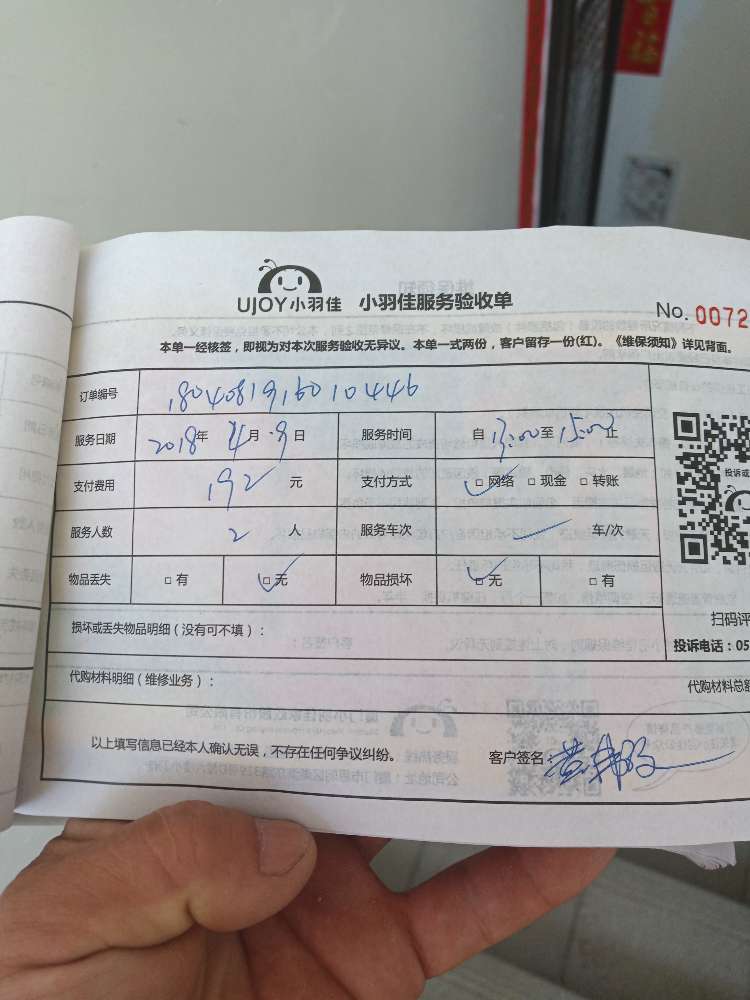 UJOY小羽佳 小羽佳服务验收单
No. 0072
本单一经核签，即视为对本次服务验收无异议。本单一式两份，客户留存一份(红)。《维保须知》详见背面。
订单编号 1804081916010446
服务日期 2018年 4月 9日 服务时间 自 13:00至 15:00止
支付费用 192 元 支付方式 ☑网络 □现金 □转账
服务人数 2 人 服务车次 一 车/次
物品丢失 □有 ☑无 物品损坏 ☑无 □有
扫码评
损坏或丢失物品明细（没有可不填）：
投诉电话：05
代购材料明细（维修业务）： 代购材料总额
以上填写信息已经本人确认无误，不存在任何争议纠纷。 客户签名: